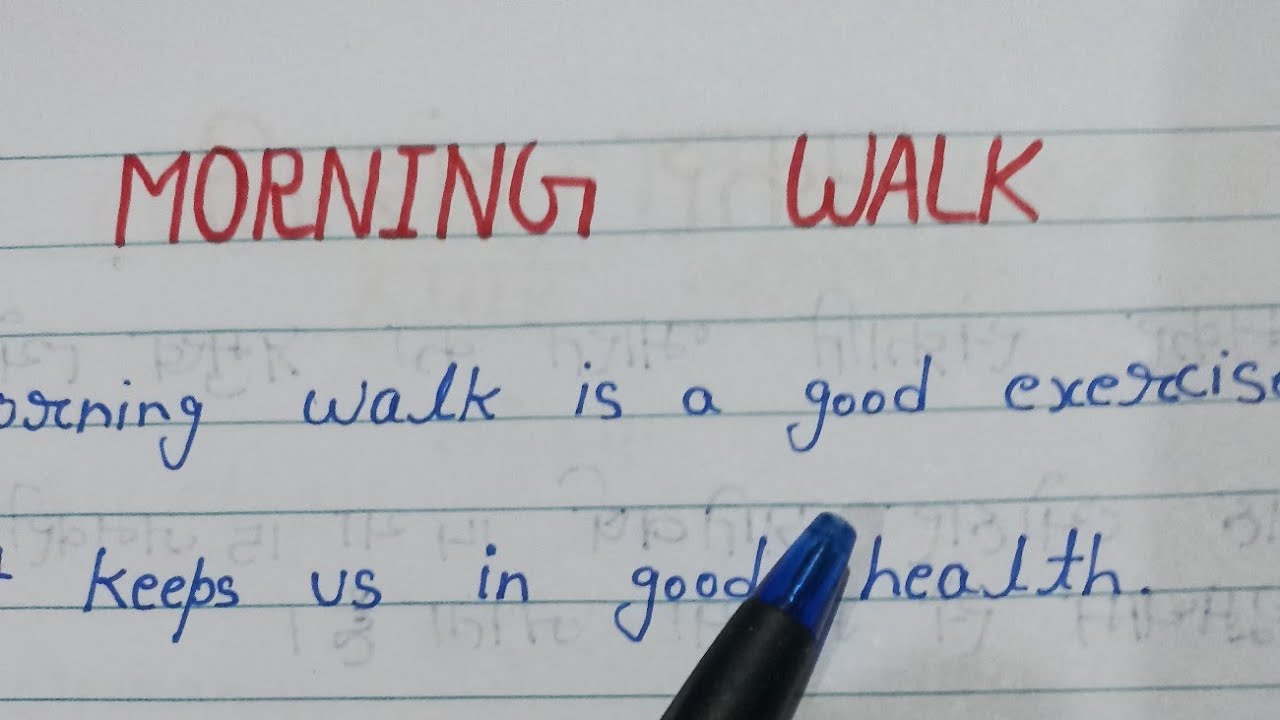 MORNING WALK
orning walk is a good exercise
keeps us in good health.